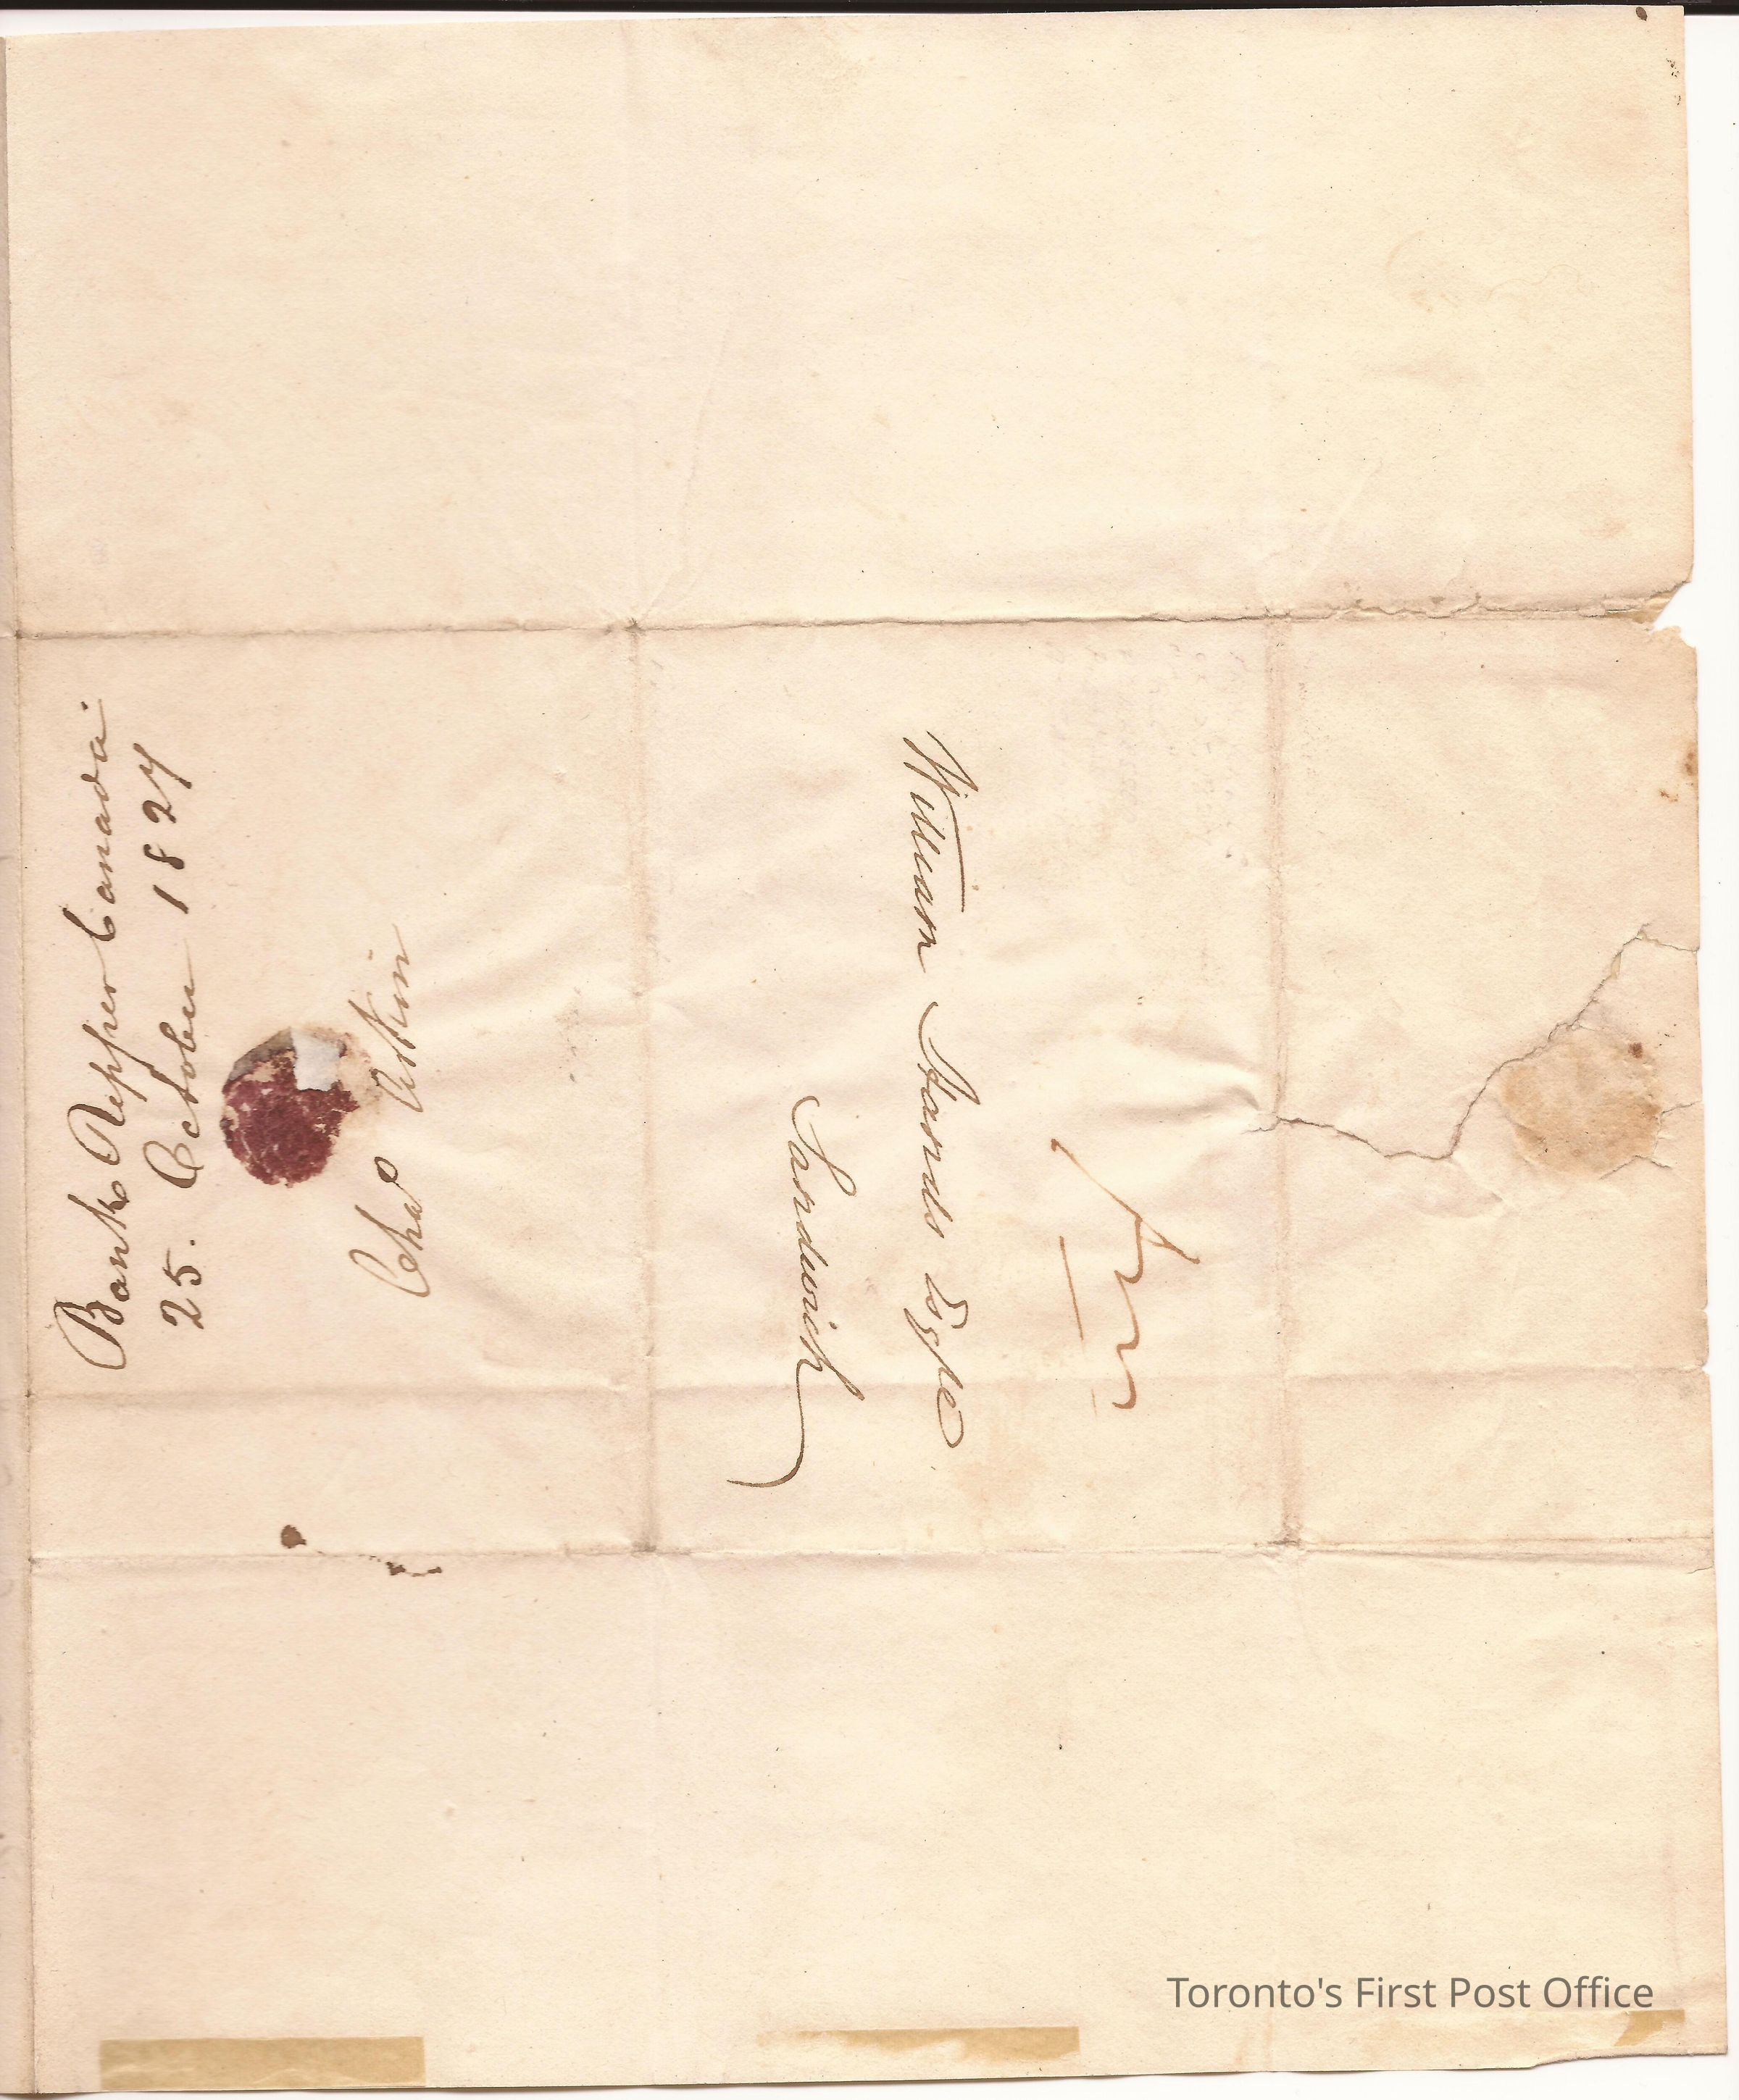 Bank Upper Canada
25. October 1827
Chas Askin
William Hands Esqre
Sandwich
Toronto's First Post Office